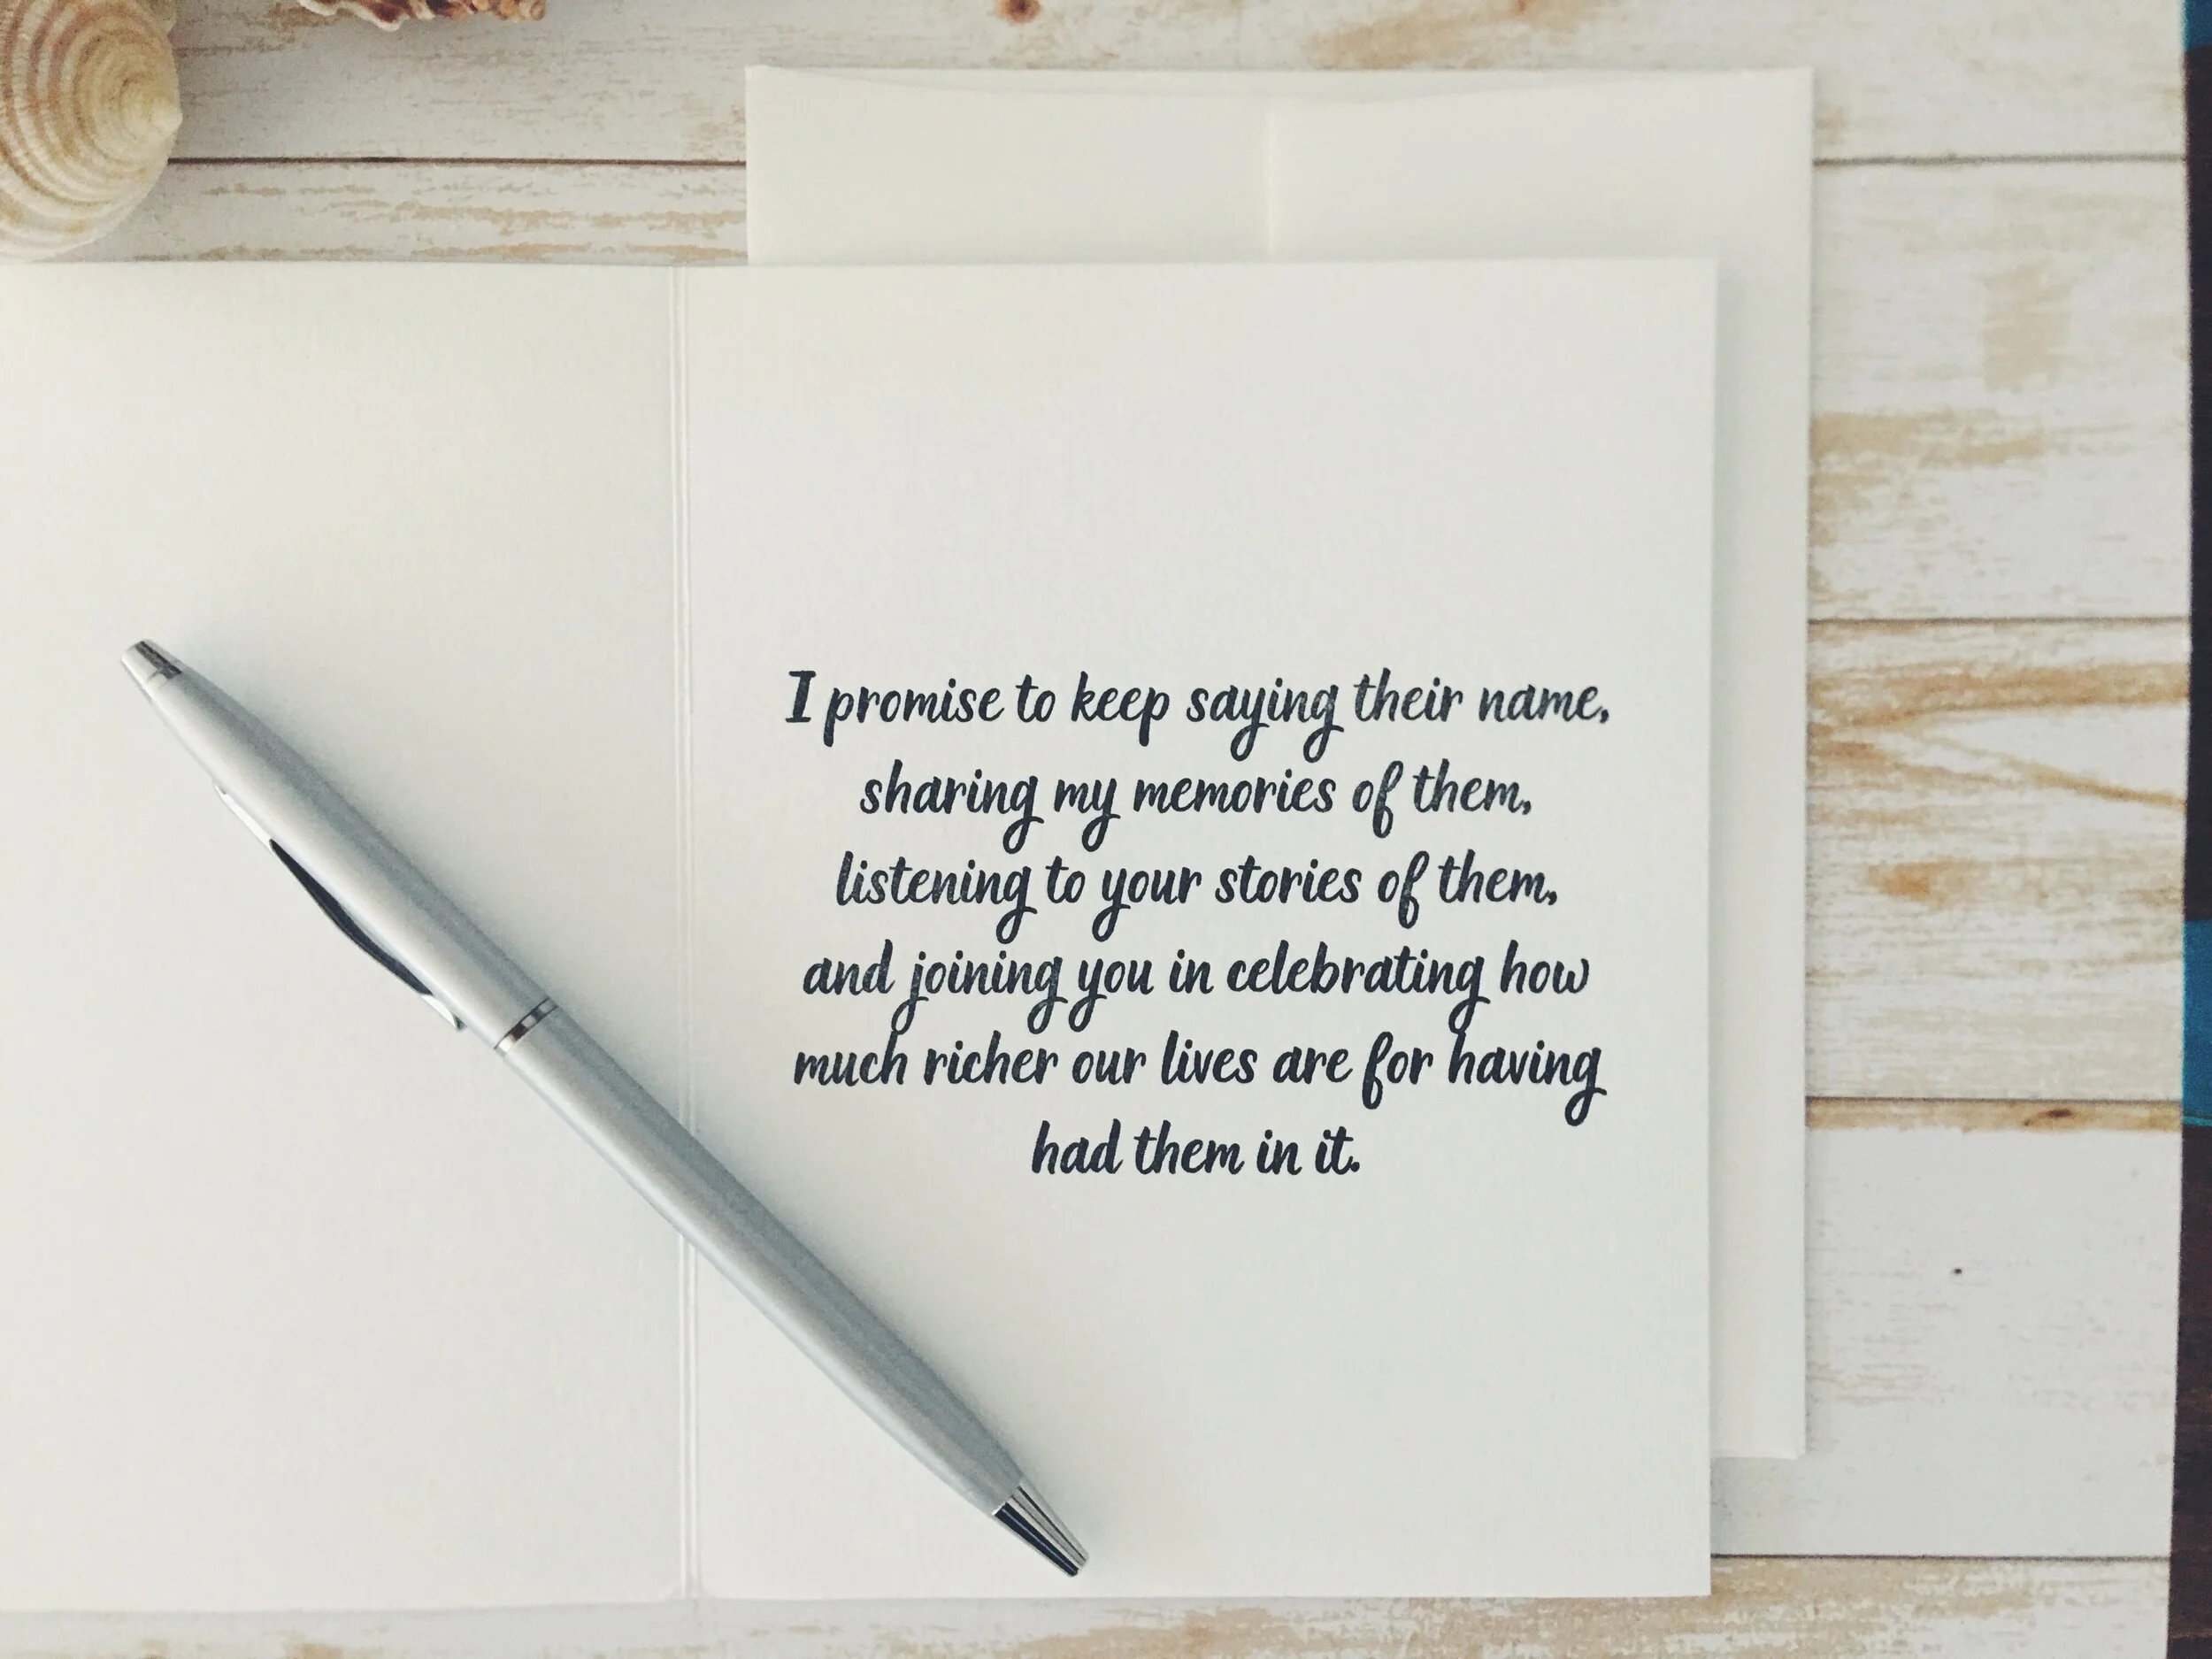 I promise to keep saying their name,
sharing my memories of them,
listening to your stories of them,
and joining you in celebrating how
much richer our lives are for having
had them in it.